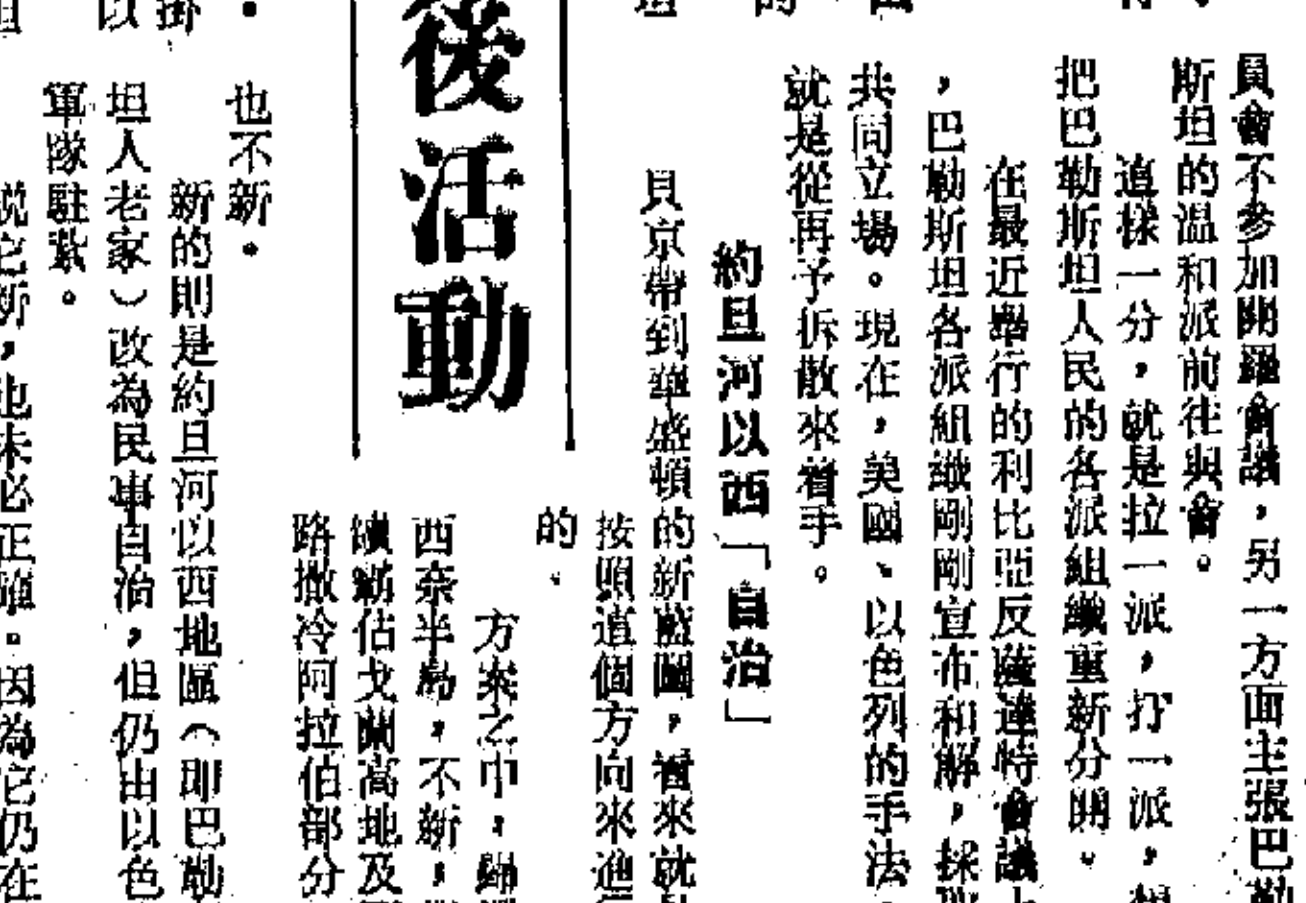 員會不參加開羅會議，另一方面主張巴勒
斯坦的温和派前往與會。
這樣一分，就是拉一派，打一派，想
把巴勒斯坦人民的各派組織重新分開。
在最近舉行的利比亞反薩達特會議上
，巴勒斯坦各派組織剛剛宣布和解，採取
共同立場。現在，美國、以色列的手法，
就是從再予拆散來着手。
約旦河以西「自治」
貝京帶到華盛頓的新藍圖，看來就是
按照這個方向來進行
的。
後活動
方案之中，歸還
西奈半島，不新，
續霸佔戈蘭高地及
路撒冷阿拉伯部分
也不新。
新的則是約旦河以西地區（即巴勒
坦人老家）改為民事自治，但仍由以色
軍隊駐紮。
說它新，也未必正確。因為它仍在